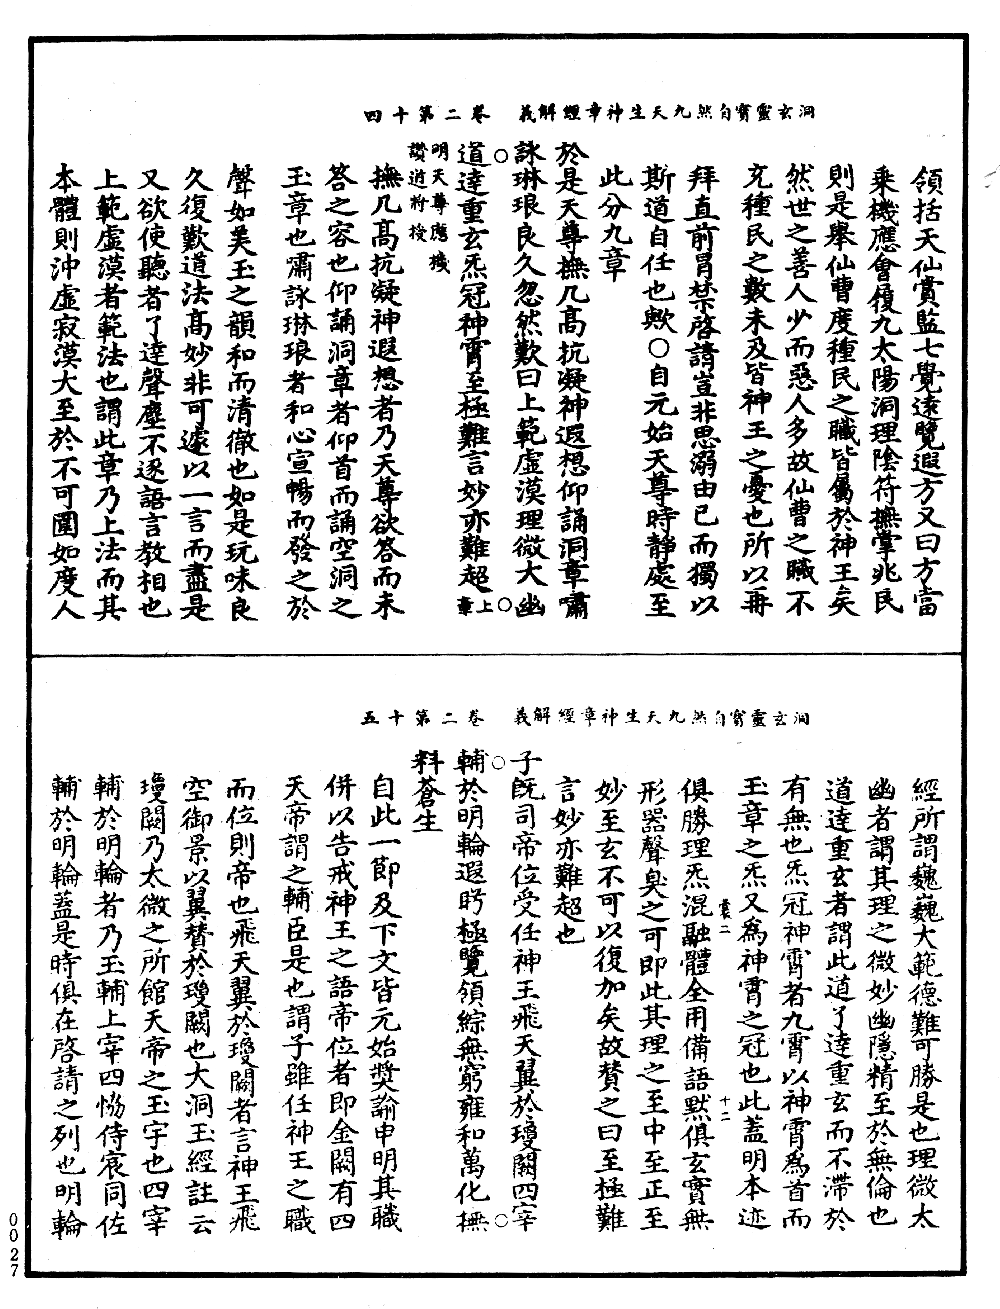 洞玄靈寶自然九天生神章經解義　卷二第十四
領括天仙賞監七覺遠覽遐方又曰方當
乘機應會履九太陽洞理陰符撫掌兆民
則是舉仙曹度種民之職皆屬於神王矣
然世之善人少而惡人多故仙曹之職不
充種民之數未及皆神王之憂也所以再
拜直前冒禁啓請豈非思溺由己而獨以
斯道自任也歟○自元始天尊時靜處至
此分九章
於是天尊撫几高抗凝神遐想仰誦洞章嘯
詠琳琅良久忽然歎曰上範虛漠理微大幽
○道達重玄炁冠神霄至極難言妙亦難超○上章
明天尊應機
讚道將授
撫几高抗凝神遐想者乃天尊欲答而未
答之容也仰誦洞章者仰首而誦空洞之
玉章也嘯詠琳琅者和心宣暢而發之於
聲如美玉之韻和而清徹也如是玩味良
久復歎道法高妙非可遽以一言而盡是
又欲使聽者了達聲塵不逐語言教相也
上範虛漠者範法也謂此章乃上法而其
本體則沖虛寂漠大至於不可圍如度人
洞玄靈寶自然九天生神章經解義　卷二第十五
經所謂巍巍大範德難可勝是也理微太
幽者謂其理之微妙幽隱精至於無倫也
道達重玄者謂此道了達重玄而不滯於
有無也炁冠神霄者九霄以神霄為首而
玉章之炁又為神霄之冠也此蓋明本迹
裳二　十二
俱勝理炁混融體全用備語默俱玄實無
形器聲臭之可即此其理之至中至正至
妙至玄不可以復加矣故贊之曰至極難
言妙亦難超也
子既司帝位受任神王飛天翼於瓊闕四宰
○輔於明輪遐眄極覽領綜無窮雍和萬化撫○
料蒼生
自此一節及下文皆元始獎諭申明其職
併以告戒神王之語帝位者即金闕有四
天帝謂之輔臣是也謂子雖任神王之職
而位則帝也飛天翼於瓊闕者言神王飛
空御景以翼贊於瓊闕也大洞玉經註云
瓊闕乃太微之所館天帝之玉宇也四宰
輔於明輪者乃玉輔上宰四恊侍宸同佐
輔於明輪蓋是時俱在啓請之列也明輪
0027